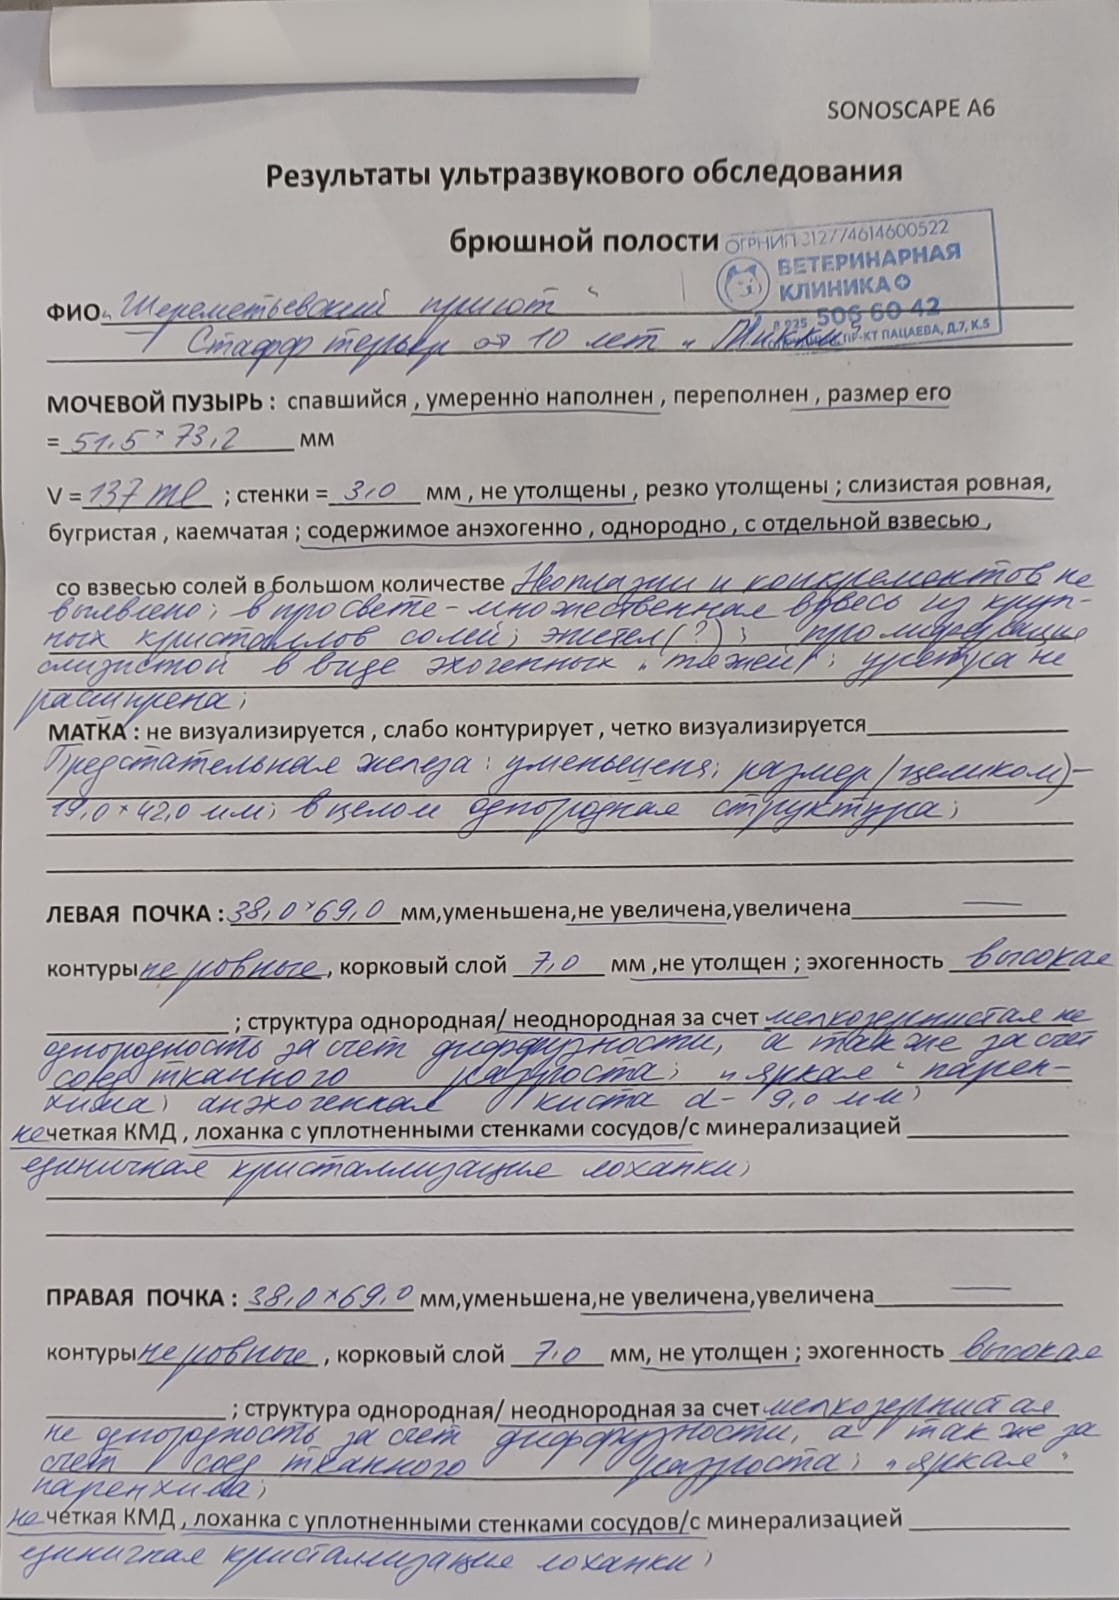 SONOSCAPE A6
Результаты ультразвукового обследования
брюшной полости
ОГРНИП 312774614600522
ВЕТЕРИНАРНАЯ
КЛИНИКА
506 60 42
ПР-КТ ПАЦАЕВА, Д.7, К.5
ФИО „Шереметьевский приют"
Стафф терьер от 10 лет „Микки"
МОЧЕВОЙ ПУЗЫРЬ : спавшийся , умеренно наполнен , переполнен , размер его
= 51,5 × 73,2 мм
V = 137 ml ; стенки = 3,0 мм , не утолщены , резко утолщены ; слизистая ровная,
бугристая , каемчатая ; содержимое анэхогенно , однородно , с отдельной взвесью ,
со взвесью солей в большом количестве Неоплазии и конкрементов не
выявлено; в просвете - множественная взвесь из круп-
ных кристаллов солей; эпител(?);
слизистой в виде эхогенных „тяжей"; уретра не
расширена;
МАТКА : не визуализируется , слабо контурирует , четко визуализируется
Предстательная железа: уменьшена; размер (целиком)-
19,0 × 42,0 мм; в целом однородная структура;
ЛЕВАЯ ПОЧКА : 38,0 × 69,0 мм,уменьшена,не увеличена,увеличена —
контуры не ровные , корковый слой 7,0 мм ,не утолщен ; эхогенность высокая
; структура однородная/ неоднородная за счет мелкозернистая не
однородность за счет диффузности, а так же за счет
соед тканного разроста; „яркая" парен-
хима; анэхогенная киста d- 9,0 мм;
не четкая КМД , лоханка с уплотненными стенками сосудов/с минерализацией
единичная кристаллизация лоханки;
ПРАВАЯ ПОЧКА : 38,0 × 69,0 мм,уменьшена,не увеличена,увеличена —
контуры не ровные , корковый слой 7,0 мм, не утолщен ; эхогенность высокая
; структура однородная/ неоднородная за счет мелкозернистая
не однородность за счет диффузности, а так же за
счет соед тканного разроста; „яркая"
паренхима;
не четкая КМД , лоханка с уплотненными стенками сосудов/с минерализацией
единичная кристаллизация лоханки;